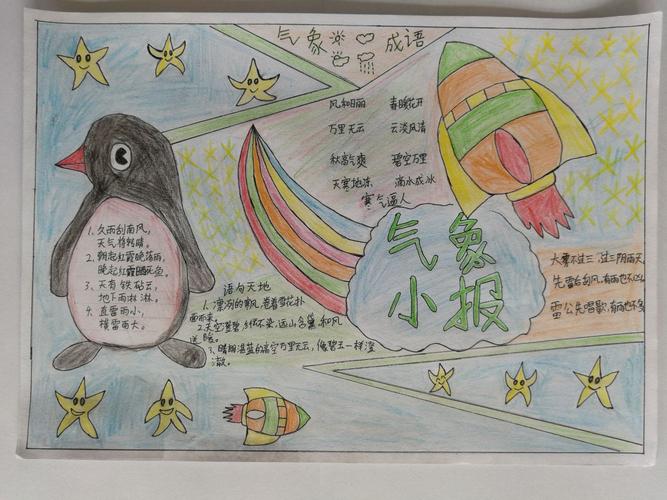 气象 成语
风和日丽 春暖花开
万里无云 云淡风清
秋高气爽 碧空万里
天寒地冻 滴水成冰
寒气逼人
气象
小报
1. 久雨刮南风,
天气将转晴。
2. 朝起红霞晚落雨,
晚起红霞晒死鱼。
3. 天有铁砧云,
地下雨淋淋。
4. 直雷雨小,
横雷雨大。
语句天地
1. 凛冽的朔风,卷着雪花扑
面而来。
2. 天空湛碧,纤尘不染,远山含黛,和风
送暖。
3. 晴朗湛蓝的高空万里无云,像碧玉一样澄
澈。
大雾不过三,过三阴雨天
先雷后刮风,有雨也不
雷公先唱歌,有雨也不多